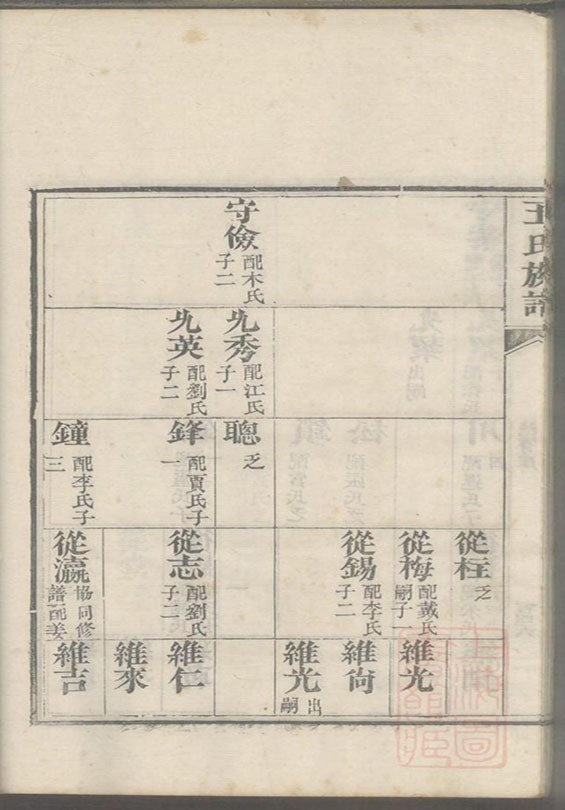 王氏族譜
守儉 配木氏子二
允秀 配江氏子一
允英 配劉氏子二
聰 乏
鋒 配賈氏子一
鐘 配李氏子三
從柱 乏
從梅 配戴氏嗣子一
從錫 配李氏子二
從志 配劉氏子二
從瀛 協同修譜配姜
維光
維尙
維光 出嗣
維仁
維來
維吉